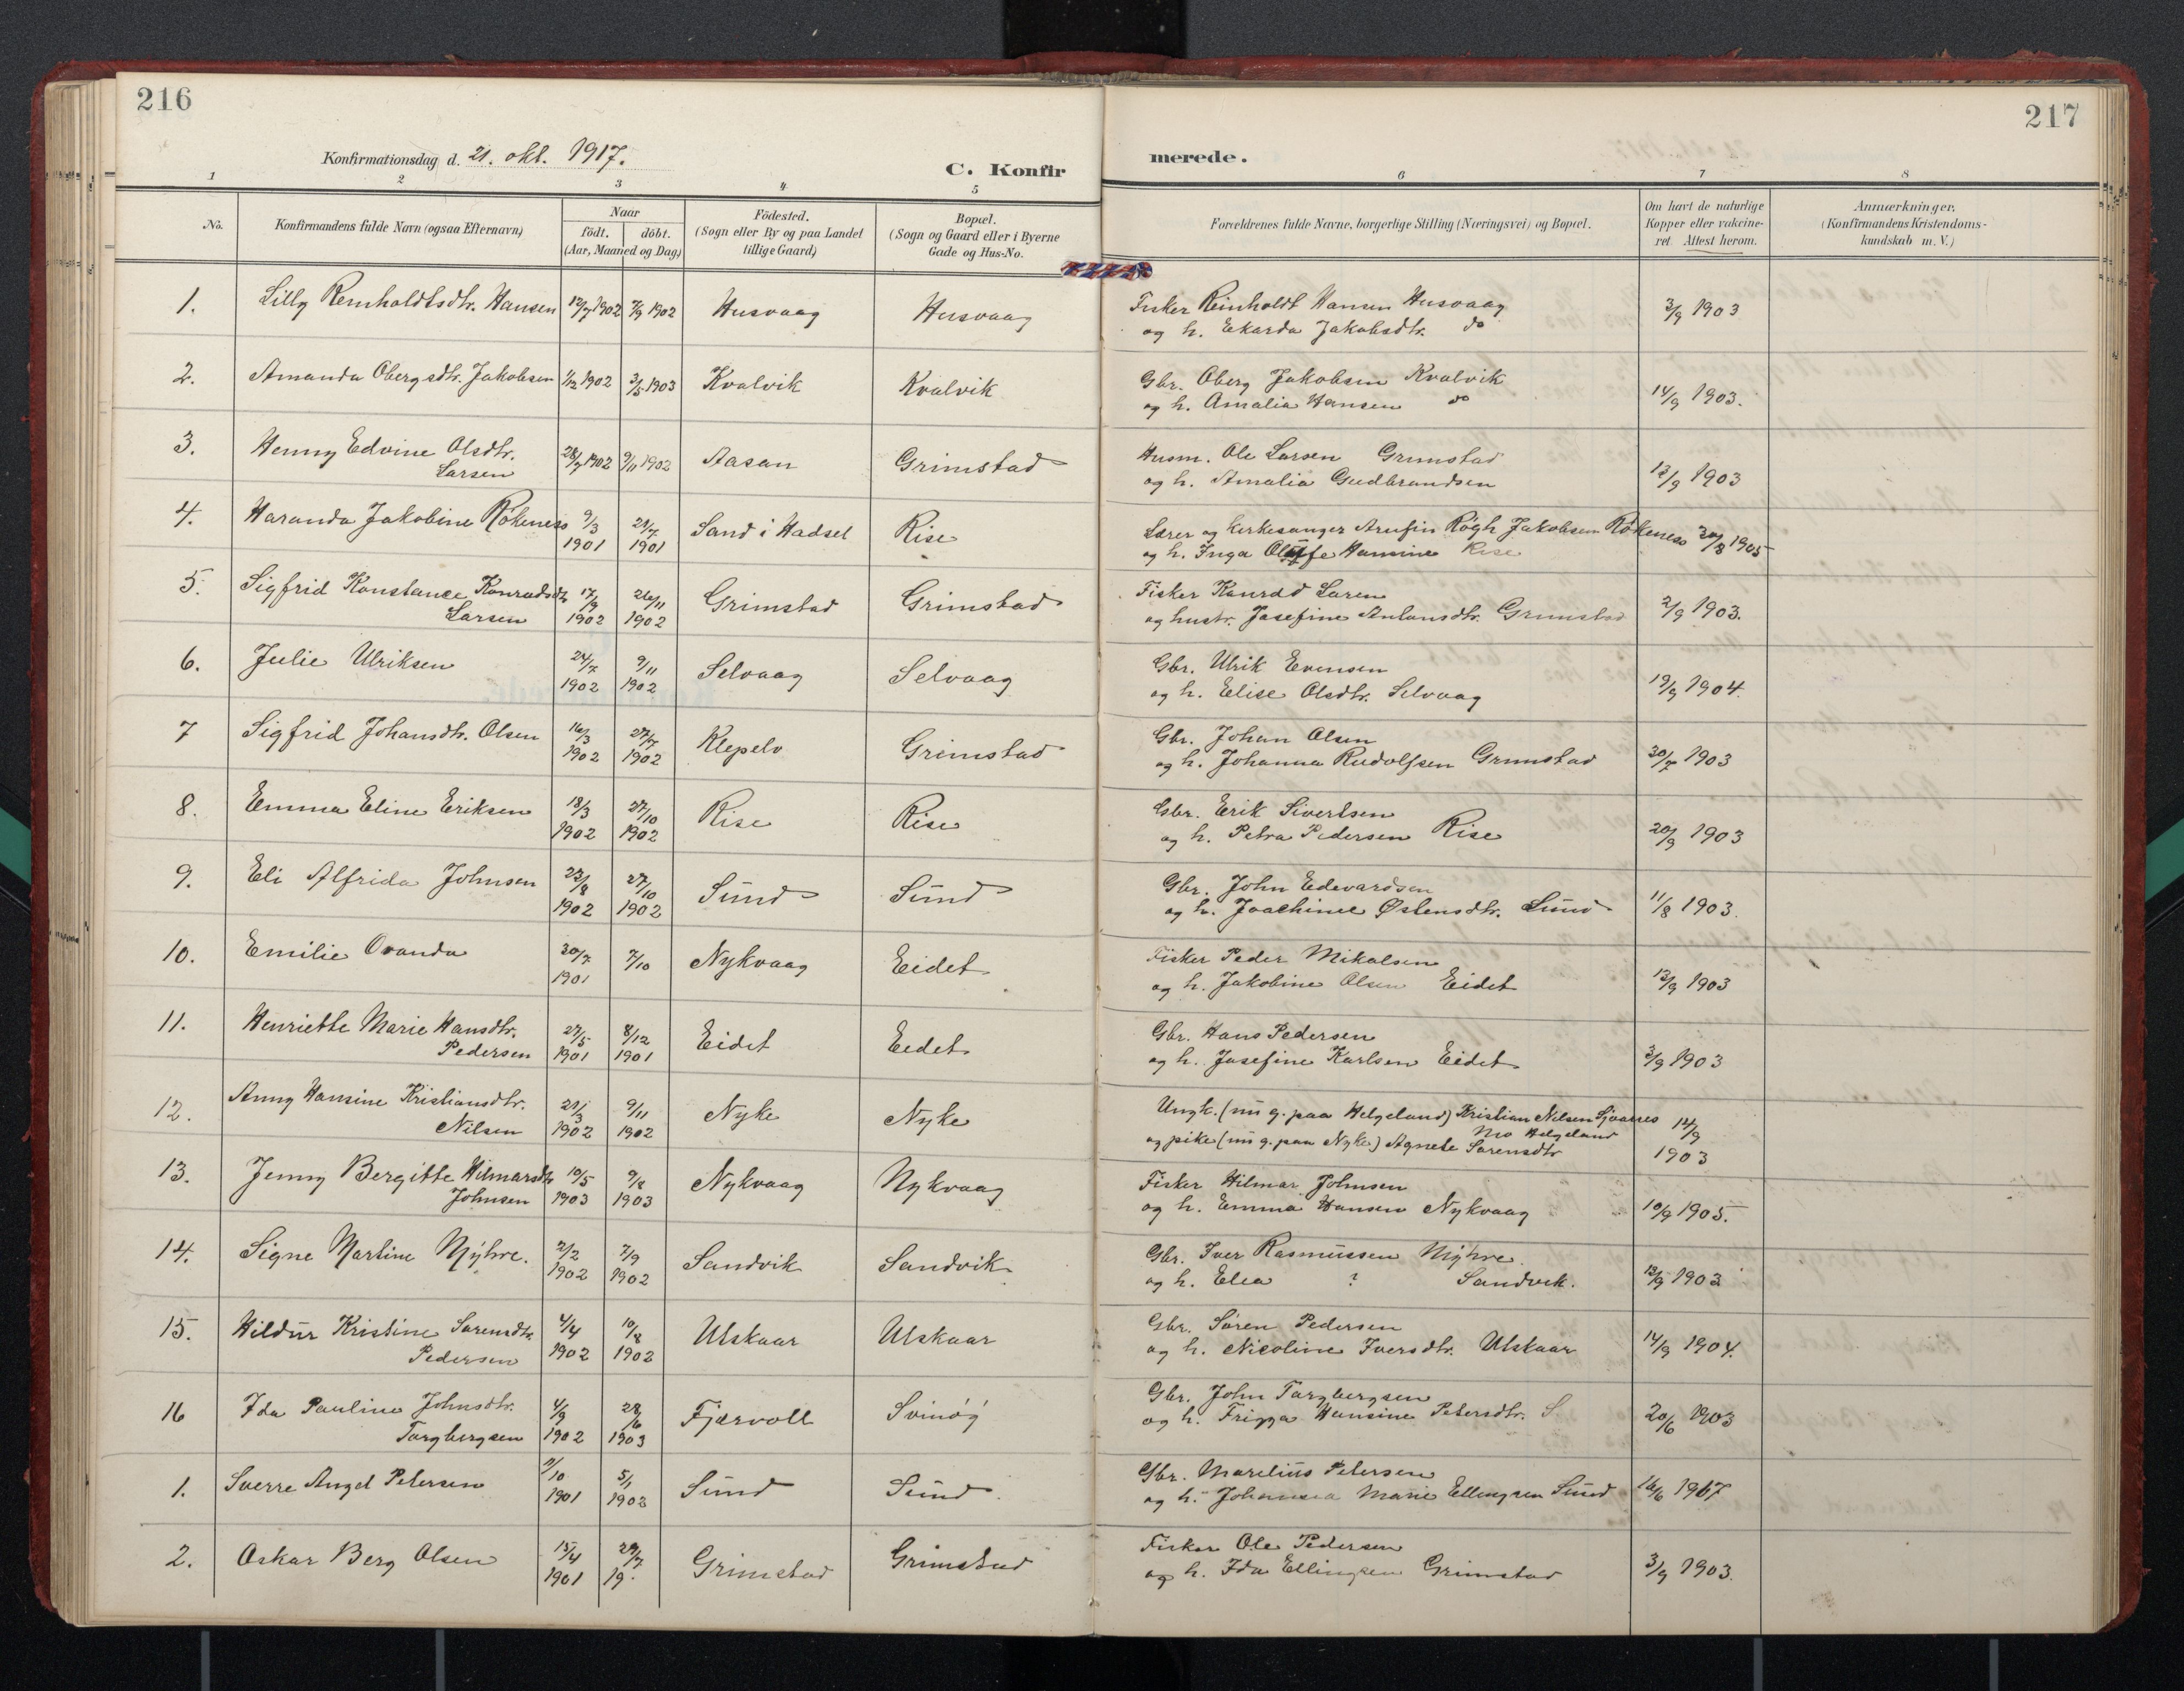 216
217
Konfirmationsdag d. 21. okt. 1917.
C. Konfir
merede.
1 2 3 4 5 6 7 8
No. Konfirmandens fulde Navn (ogsaa Efternavn) Naar født. døbt. (Aar, Maaned og Dag) Födested. (Sogn eller By og paa Landet tillige Gaard) Bopæl. (Sogn og Gaard eller i Byerne Gade og Hus-No. Forældrenes fulde Navne, borgerlige Stilling (Næringsvei) og Bopæl. Om havt de naturlige Kopper eller vakcineret Attest herom. Anmærkninger. (Konfirmandens Kristendomskundskab m. V.)
1. Lilly Reinholdtsdtr. Hansen 12/7 1902 7/9 1902 Husvaag Husvaag Fisker Reinholdt Hansen Husvaag 3/9 1903
og h. Ekarda Jakobsdtr. do
2. Amanda Obergsdtr. Jakobsen 1/12 1902 3/5 1903 Kvalvik Kvalvik Gbr. Oberg Jakobsen Kvalvik 14/9 1903.
og h. Amalia Hansen do
3. Henny Edvine Olsdtr. 28/7 1902 9/11 1902 Aasan Grimstad Husm. Ole Larsen Grimstad 12/9 1903
Larsen og h. Amalia Gudbrandsen
4. Haranda Jakobine Rökeness 9/3 1901 21/7 1901 Sand i Hadsel Rise Lærer og kirkesanger Arnfin Rögh Jakobsen Rökeness 30/8 1905
og h. Inga Hansine Rise
5. Sigfrid Konstance Konradsdtr 17/9 1902 26/11 1902 Grimstad Grimstad Fisker Konrad Larsen 2/9 1903.
Larsen og hustr. Josefine Antonsdtr. Grimstad
6. Julie Ulriksen 24/7 1902 9/11 1902 Selvaag Selvaag Gbr. Ulrik Evensen 19/9 1904.
og h. Elise Olsdtr. Selvaag
7 Sigfrid Johansdtr. Olsen 16/3 1902 27/7 1902 Klepelv Grimstad Gbr. Johan Olsen 30/7 1903
og h. Johanna Rudolfsen Grimstad
8. Emma Eline Eriksen 18/3 1902 27/10 1902 Rise Rise Gbr. Erik Sivertsen 20/9 1903
og h. Petra Pedersen Rise
9. Eli Alfrida Johnsen 22/8 1902 27/10 1902 Sund Sund Gbr. John Edevardsen 11/8 1903.
og h. Joachime Østensdtr. Sund
10. Emilie Ovanda 30/7 1901 7/10 Nykvaag Eidet Fisker Peder Mikalsen 12/9 1903
og h. Jakobine Olsen Eidet
11. Henriette Marie Hansdtr. 27/5 1901 8/12 1901 Eidet Eidet Gbr. Hans Pedersen 3/9 1903
Pedersen og h. Josefine Karlsen Eidet
12. Anny Hansine Kristiansdtr. 21/3 1902 9/11 1902 Nyke Nyke Ungk. (nu g. paa Helgeland) Kristian Nilsen 14/9 1903
Nilsen og pike (nu g. paa Nyke) Agnete Sørensdtr Helgeland
13. Jenny Bergitte Hilmarsdtr 10/5 1903 9/8 1903 Nykvaag Nykvaag Fisker Hilmar Johnsen 10/9 1905.
Johnsen og h. Emma Hansen Nykvaag
14. Signe Martine Myhre. 2/2 1902 7/9 1902 Sandvik Sandvik Gbr. Iver Rasmussen Myhre. 12/9 1903
og h. Elea ? Sandvik.
15. Hildur Kristine Sørensdtr 4/4 1902 10/8 1902 Ulskaar Ulskaar Gbr. Sören Pedersen 14/9 1904.
Pedersen og h. Nicoline Iversdtr. Ulskaar
16 Ida Pauline Johnsdtr. 4/9 1902 28/6 1903 Fjærvoll Svinöy Gbr. John Torgbergsen 20/6 1903
Torgbergsen og h. Frigga Hansine Petersdtr. S.
1. Sverre Angel Petersen 9/10 1901 5/1 1902 Sund Sund. Gbr. Marelius Petersen 16/6 1917
og h. Johansea Marie Ellingsen Sund
2. Oskar Berg Olsen 15/4 1901 29/7 19. Grimstad Grimstad Fisker Ole Pedersen 3/9 1903.
og h. Ida Ellingsen Grimstad